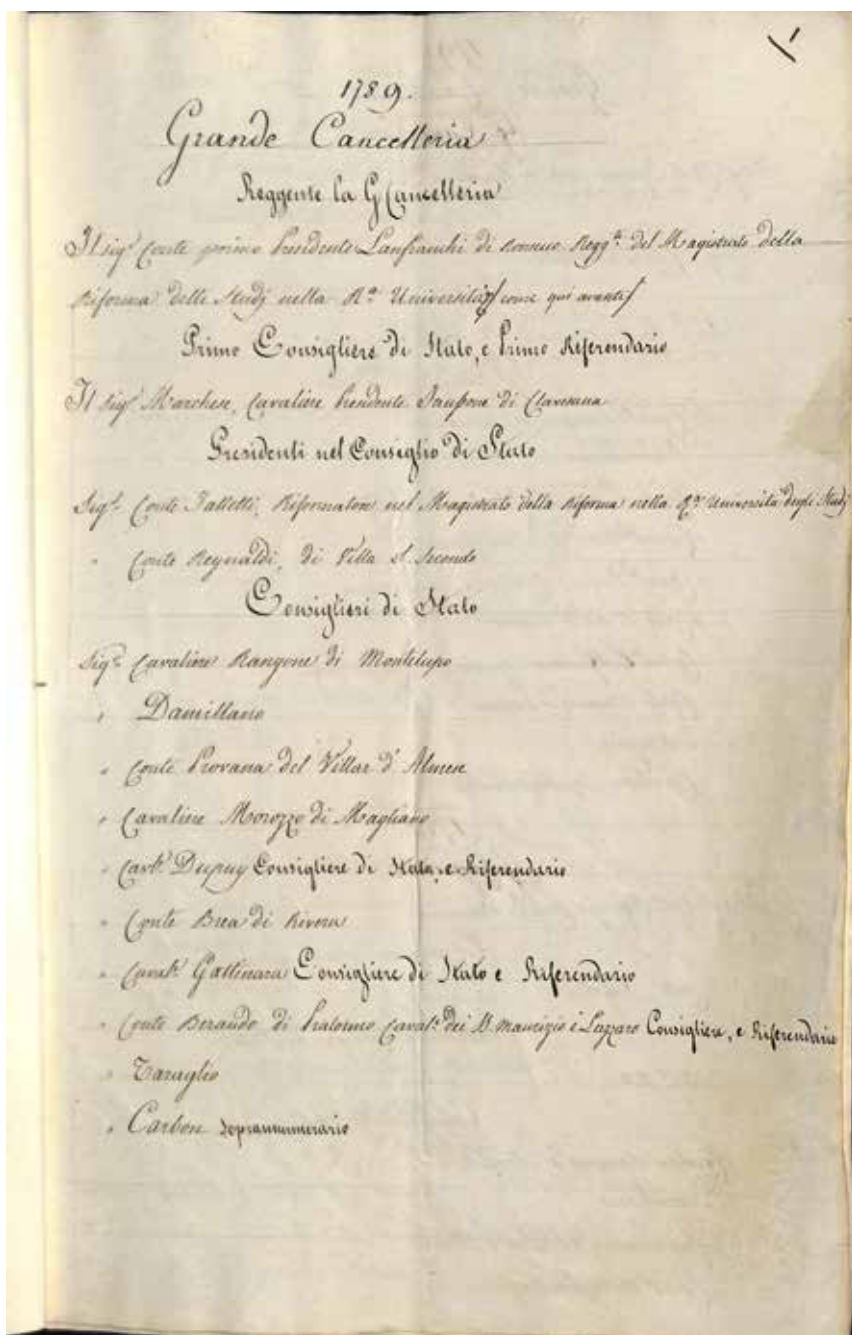 1
1789.
Grande Cancelleria
Reggente la G Cancelleria
Il sigr Conte primo Presidente Lanfranchi di Ronsecco Reggte del Magistrato della
Riforma delle Studj nella Ra Università come qui avanti
Primo Consigliere di Stato, e Primo Riferendario
Il Sigr Marchese, Cavaliere Presidente di Clavesana
Presidenti nel Consiglio di Stato
Sigri Conte Riformatore nel Magistrato della Riforma nella Ra Università degli Studj
" Conte Reynaldi, di Villa S. Secondo
Consiglieri di Stato
Sigri Cavaliere Rangone di Montelupo
" Damillano
" Conte Provana del Villar d'Almese
" Cavaliere Morozzo di Magliano
" Cavre Dupuy Consigliere di Stato, e Riferendario
" Conte Brea di Rivera
" Cavare Gattinara Consigliere di Stato e Riferendario
" Conte Beraudo di Pralormo Cavale dei S. Maurizio e Lazzaro Consigliere, e Riferendario
" Taraglio
" Carbon Soprannumerario